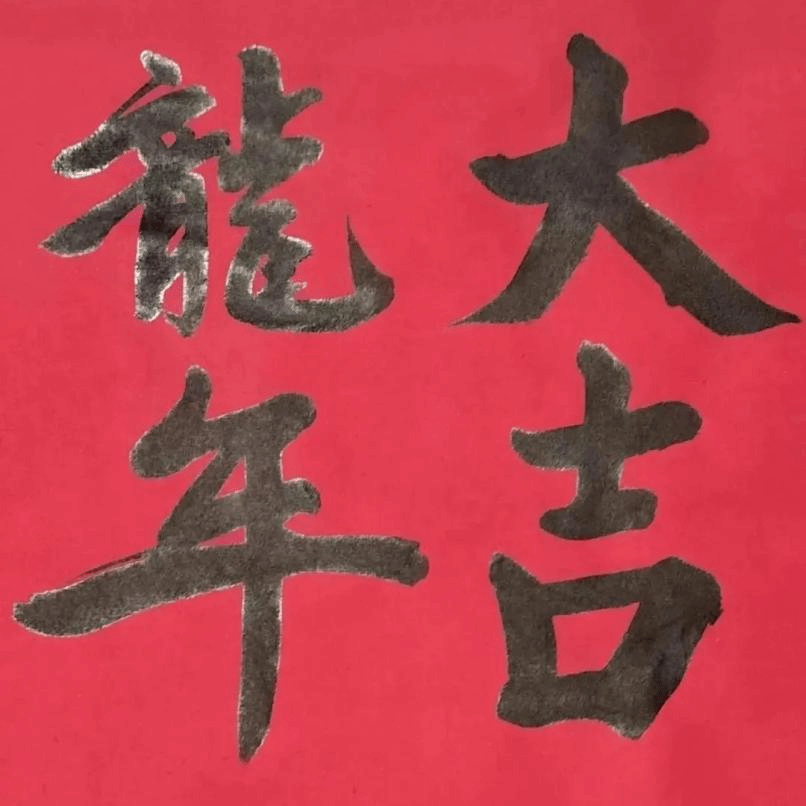 龍年
大吉